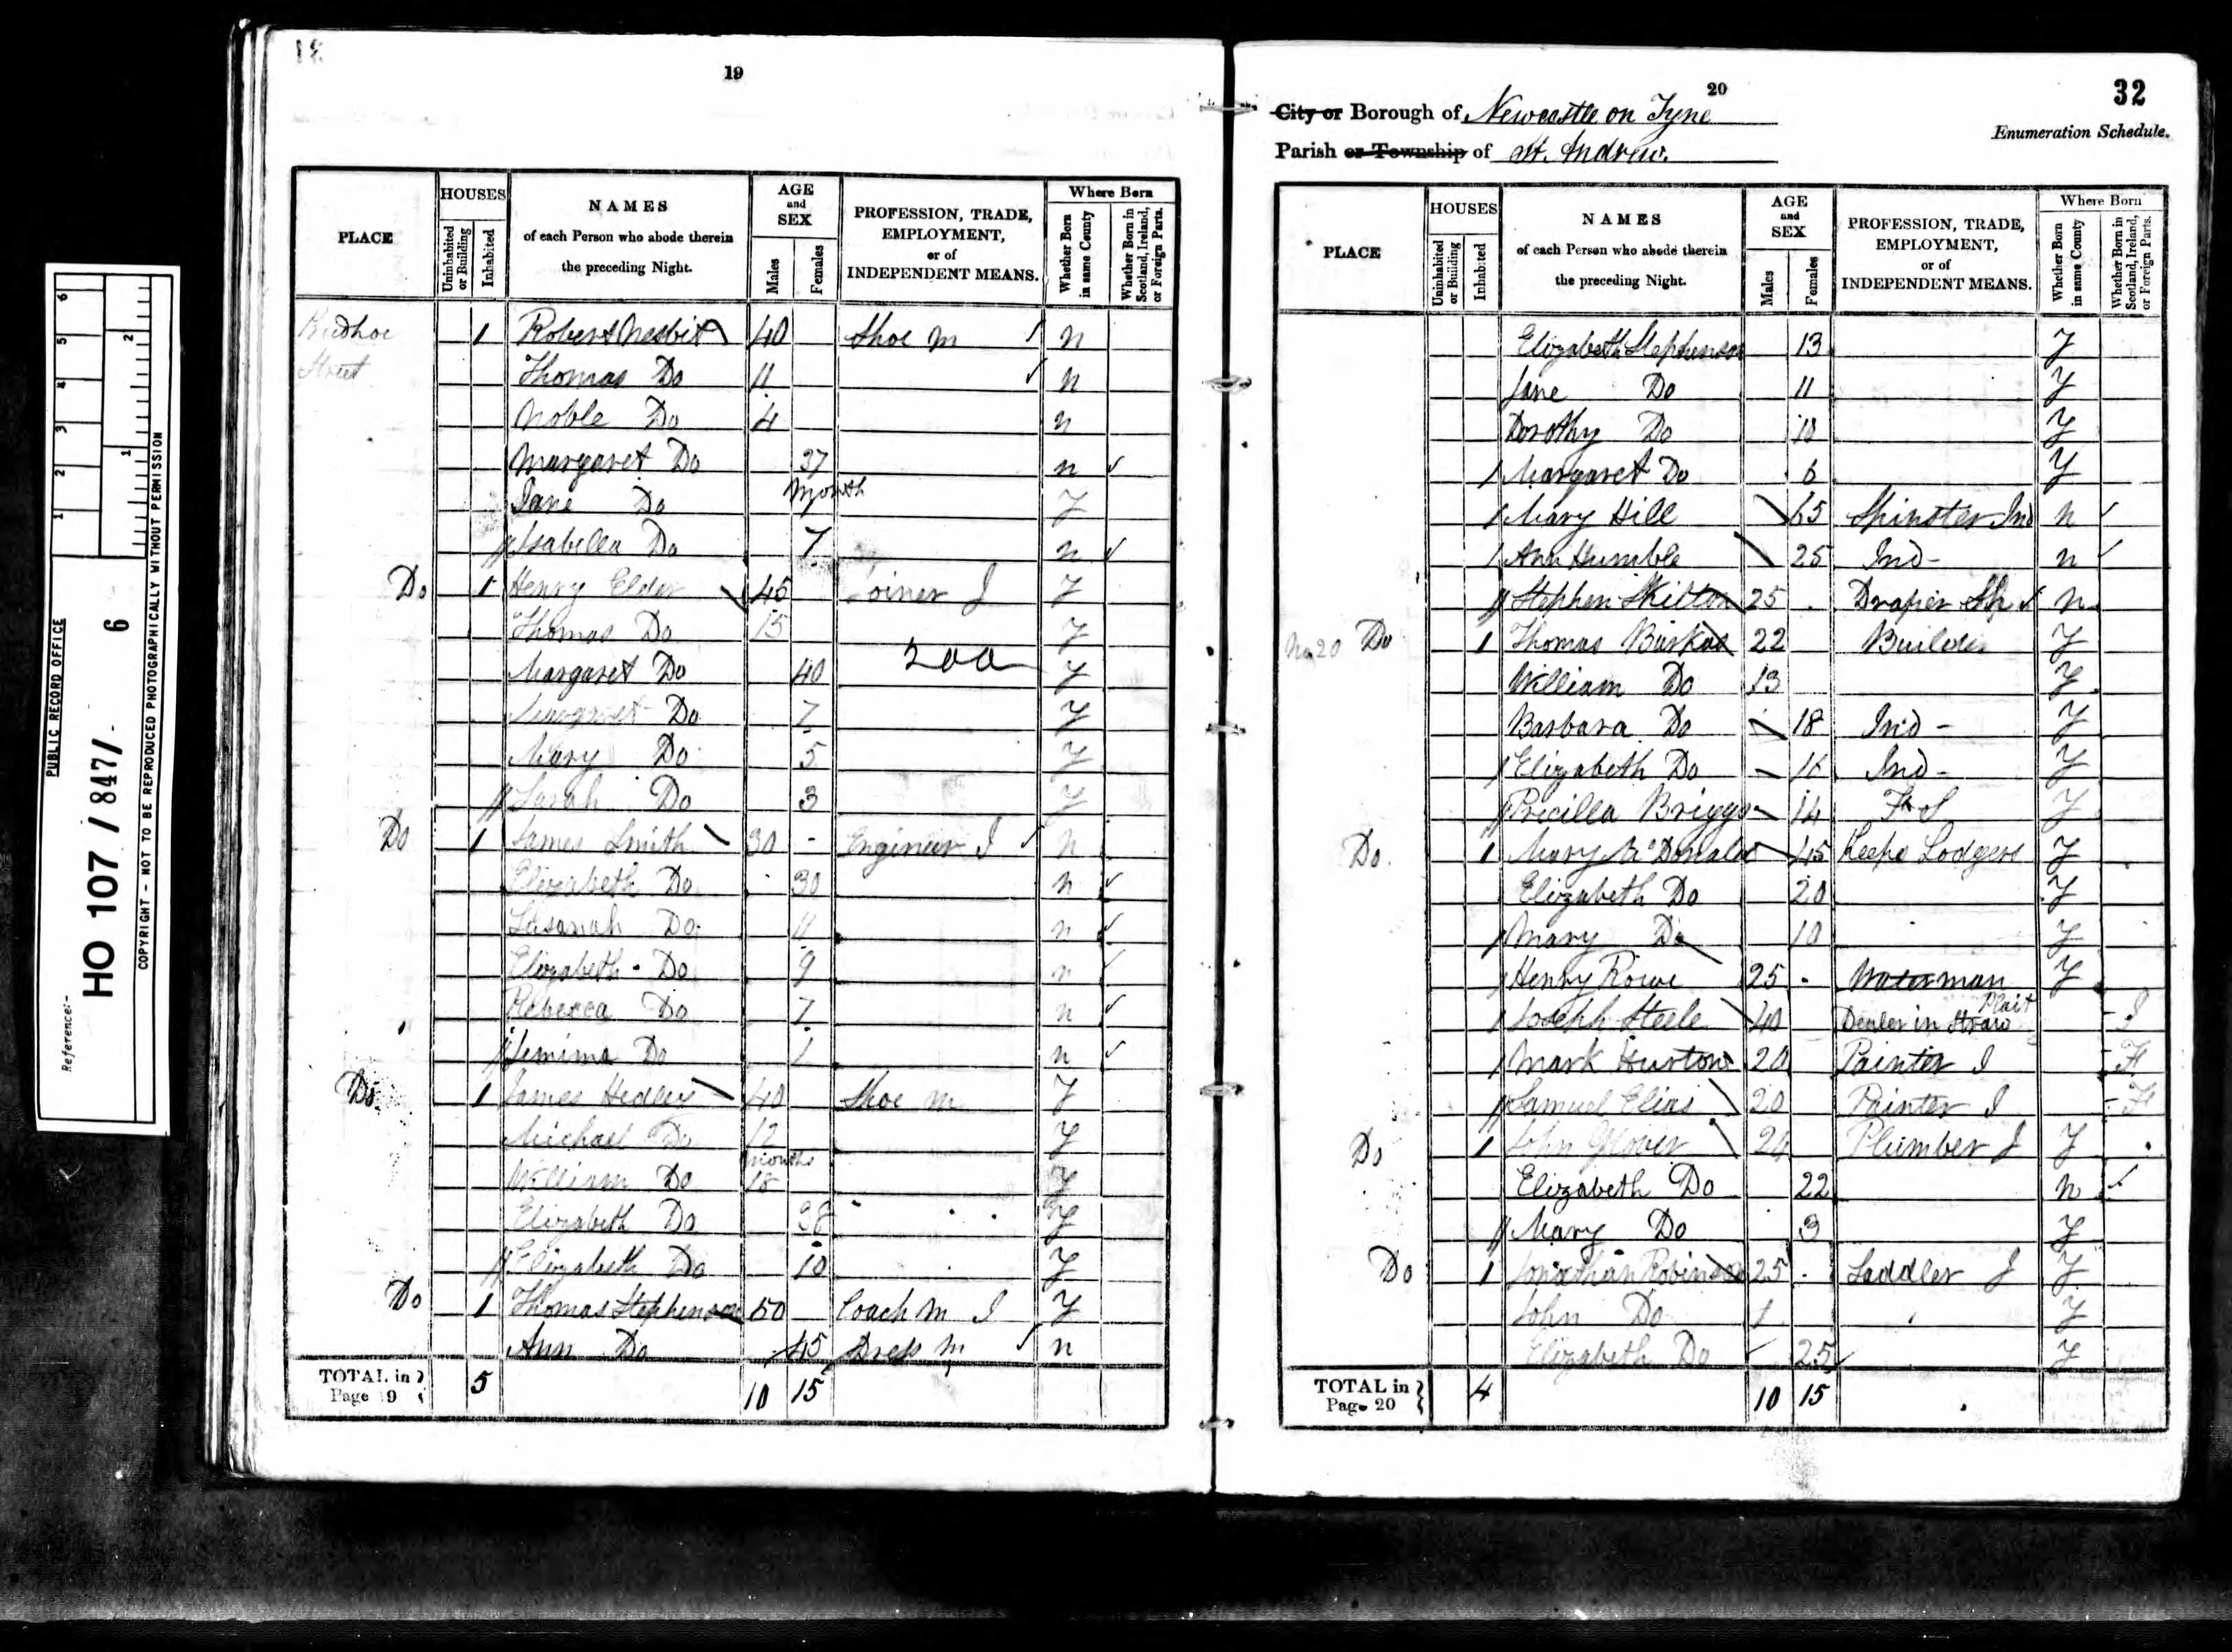 PUBLIC RECORD OFFICE
Reference:-
HO 107 / 847/. 6
COPYRIGHT - NOT TO BE REPRODUCED PHOTOGRAPHICALLY WITHOUT PERMISSION
1 2 3 4 5 6
1 2
19
PLACE
HOUSES
Uninhabited or Building
Inhabited
NAMES
of each Person who abode therein
the preceding Night.
AGE and SEX
Males
Females
PROFESSION, TRADE,
EMPLOYMENT,
or of
INDEPENDENT MEANS.
Where Born
Whether Born in same County
Whether Born in Scotland, Ireland, or Foreign Parts.
Prudhoe 1 Robert Nesbit 40 Shoe M n
Street Thomas Do 11 n
Noble Do 4 n
Margaret Do 37 n
Jane Do Month Y
Isabella Do 7 n
Do 1 Henry Elder 45 Joiner J Y
Thomas Do 15 Y
Margaret Do 40 200 Y
Margaret Do 7 Y
Mary Do 5 Y
Sarah Do 3 Y
Do 1 James Smith 30 - Engineer J n
Elizabeth Do 30 n
Susanah Do 11 n
Elizabeth Do 9 n
Rebecca Do 7 n
Jemima Do 1 n
Do 1 James Hedley 40 Shoe m Y
Michael Do 12 Y
William Do months 18 Y
Elizabeth Do 38 Y
Elizabeth Do 10 Y
Do 1 Thomas Stephenson 50 Coach M J Y
Ann Do 45 Dress M n
TOTAL in Page 19 5 10 15
20
32
City or Borough of Newcastle on Tyne
Enumeration Schedule.
Parish or Township of St. Andrew.
PLACE
HOUSES
Uninhabited or Building
Inhabited
NAMES
of each Person who abode therein
the preceding Night.
AGE and SEX
Males
Females
PROFESSION, TRADE,
EMPLOYMENT,
or of
INDEPENDENT MEANS.
Where Born
Whether Born in same County
Whether Born in Scotland, Ireland, or Foreign Parts.
Elizabeth Stephenson 13 Y
Jane Do 11 Y
Dorothy Do Y
Margaret Do 6 Y
Mary Hill 65 Spinster Ind n
Ann Humble 25 Ind - n
Stephen Skilton 25 Draper n
No 20 Do 1 Thomas Barkas 22 Builder Y
William Do 13 Y
Barbara Do 18 Ind - Y
Elizabeth Do 16 Ind - Y
Pricilla Briggs 14 F S Y
Do 1 Mary McDonald 45 Keeps Lodgers Y
Elizabeth Do 20 Y
Mary Do 10 Y
Henry Rowe 25 Waterman Y
Joseph Steele 40 Dealer in Straw Plait
Mark Huston 20 Painter J F
Samuel Elias 20 Painter J F
Do 1 John Glover 24 Plumber J Y
Elizabeth Do 22 n
Mary Do 3 Y
Do 1 Jonathan Robinson 25 Saddler J Y
John Do 1 Y
Elizabeth Do 25 Y
TOTAL in Page 20 4 10 15